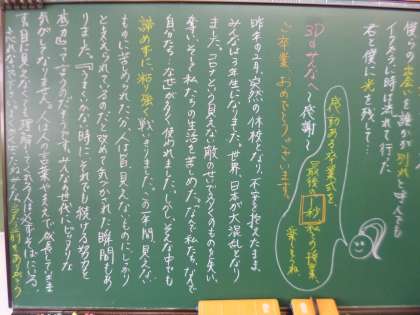 僕らの出会いを誰かが別れと呼んでも
イタズラに時は流れて行った
君と僕に光を残して…
感動ある卒業式を
最後の1秒まで私たちの授業、
楽しもうね
3Dのみなへ 感謝〜
ご卒業、おめでとうございます。
昨年の3月、突然の休校となり、不安を抱えたまま、
みんなは3年生になりました。世界、日本が大混乱となり
ました。コロナという見えない敵のせいで多くのものを失い、
奪い、そして私たちの生活を苦しめた。「なんで私たち、なんで
自分たち…なぜ」が多く使われました。しかし、そんな中でも
諦めずに、粘り強く戦い続けました。この一年間、見えない
ものに苦しめられた一方、人は皆、見えないものにしっかり
と支えられているのだと改めて気づかされた瞬間もあ
りました。『うまくいかない時に、それでも続ける努力を
底力』ってよぶのだそうです。みんなの世代にピッタリな
気がしてなりません。人は人の言葉や支えで成長していきま
す。目に見えなくても理解してくれる人は必ずそばにいる。